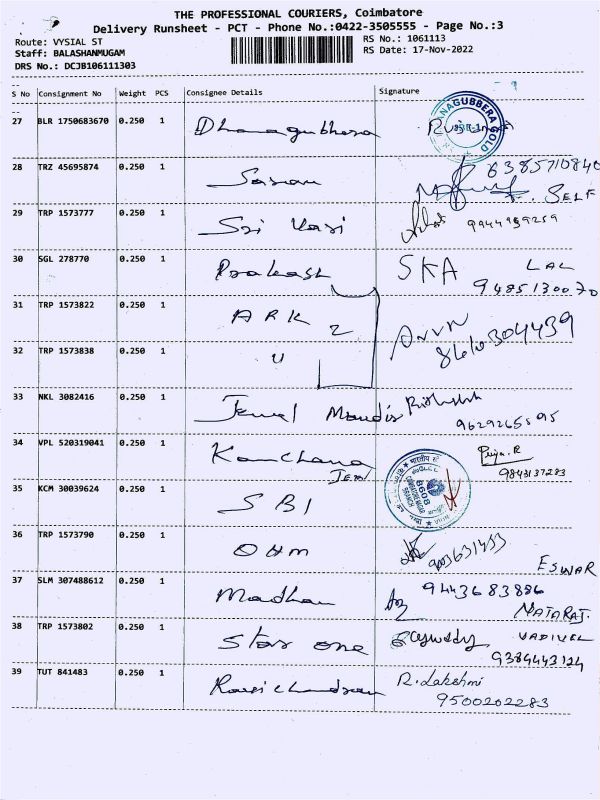 THE PROFESSIONAL COURIERS, Coimbatore
Delivery Runsheet - PCT - Phone No.:0422-3505555 - Page No.:3
Route: VYSIAL ST
Staff: BALASHANMUGAM
DRS No.: DCJB106111303
RS No.: 1061113
RS Date: 17-Nov-2022
S No Consignment No Weight PCS Consignee Details Signature
27 BLR 1750683670 0.250 1 Dhanagubbera
28 TRZ 45695874 0.250 1 Saravan 6385710840
SELF
29 TRP 1573777 0.250 1 Sri Vasi 9944959259
30 SGL 278770 0.250 1 Prakash SKA LAL
9485130070
31 TRP 1573822 0.250 1 ARK 2
8610304439
32 TRP 1573838 0.250 1 "
33 NKL 3082416 0.250 1 Jewel Mandir Rishabh
9629265595
34 VPL 520319041 0.250 1 Kanchana Jewl Priya.R
9843137283
35 KCM 30039624 0.250 1 SBI
36 TRP 1573790 0.250 1 OHM
37 SLM 307488612 0.250 1 Madhan 9443683886
ESWAR
NATARAJ.
38 TRP 1573802 0.250 1 Star one VADIVEL
9384443124
39 TUT 841483 0.250 1 Ravichandran R. Lakshmi
9500202283